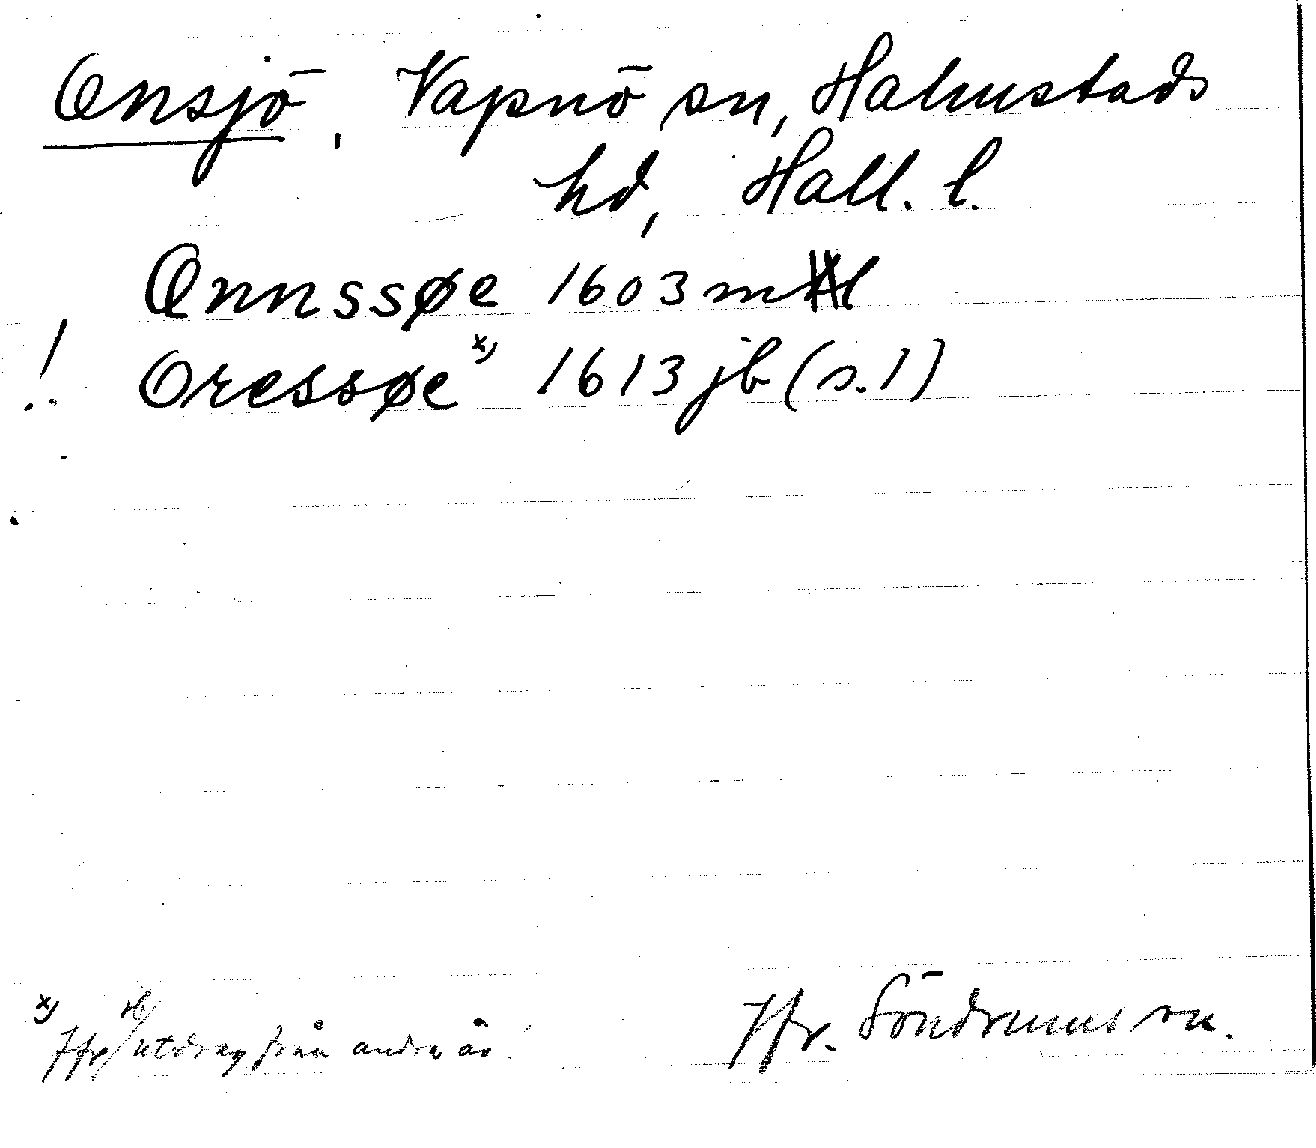 Onsjö, Vapnö sn, Halmstads
hd, Hall. l.
Onnssøe 1603 mtl
! Oressøe x) 1613 jb (s. 1)
x) Jfr utdrag från andra år! Jfr. Söndrums sn.